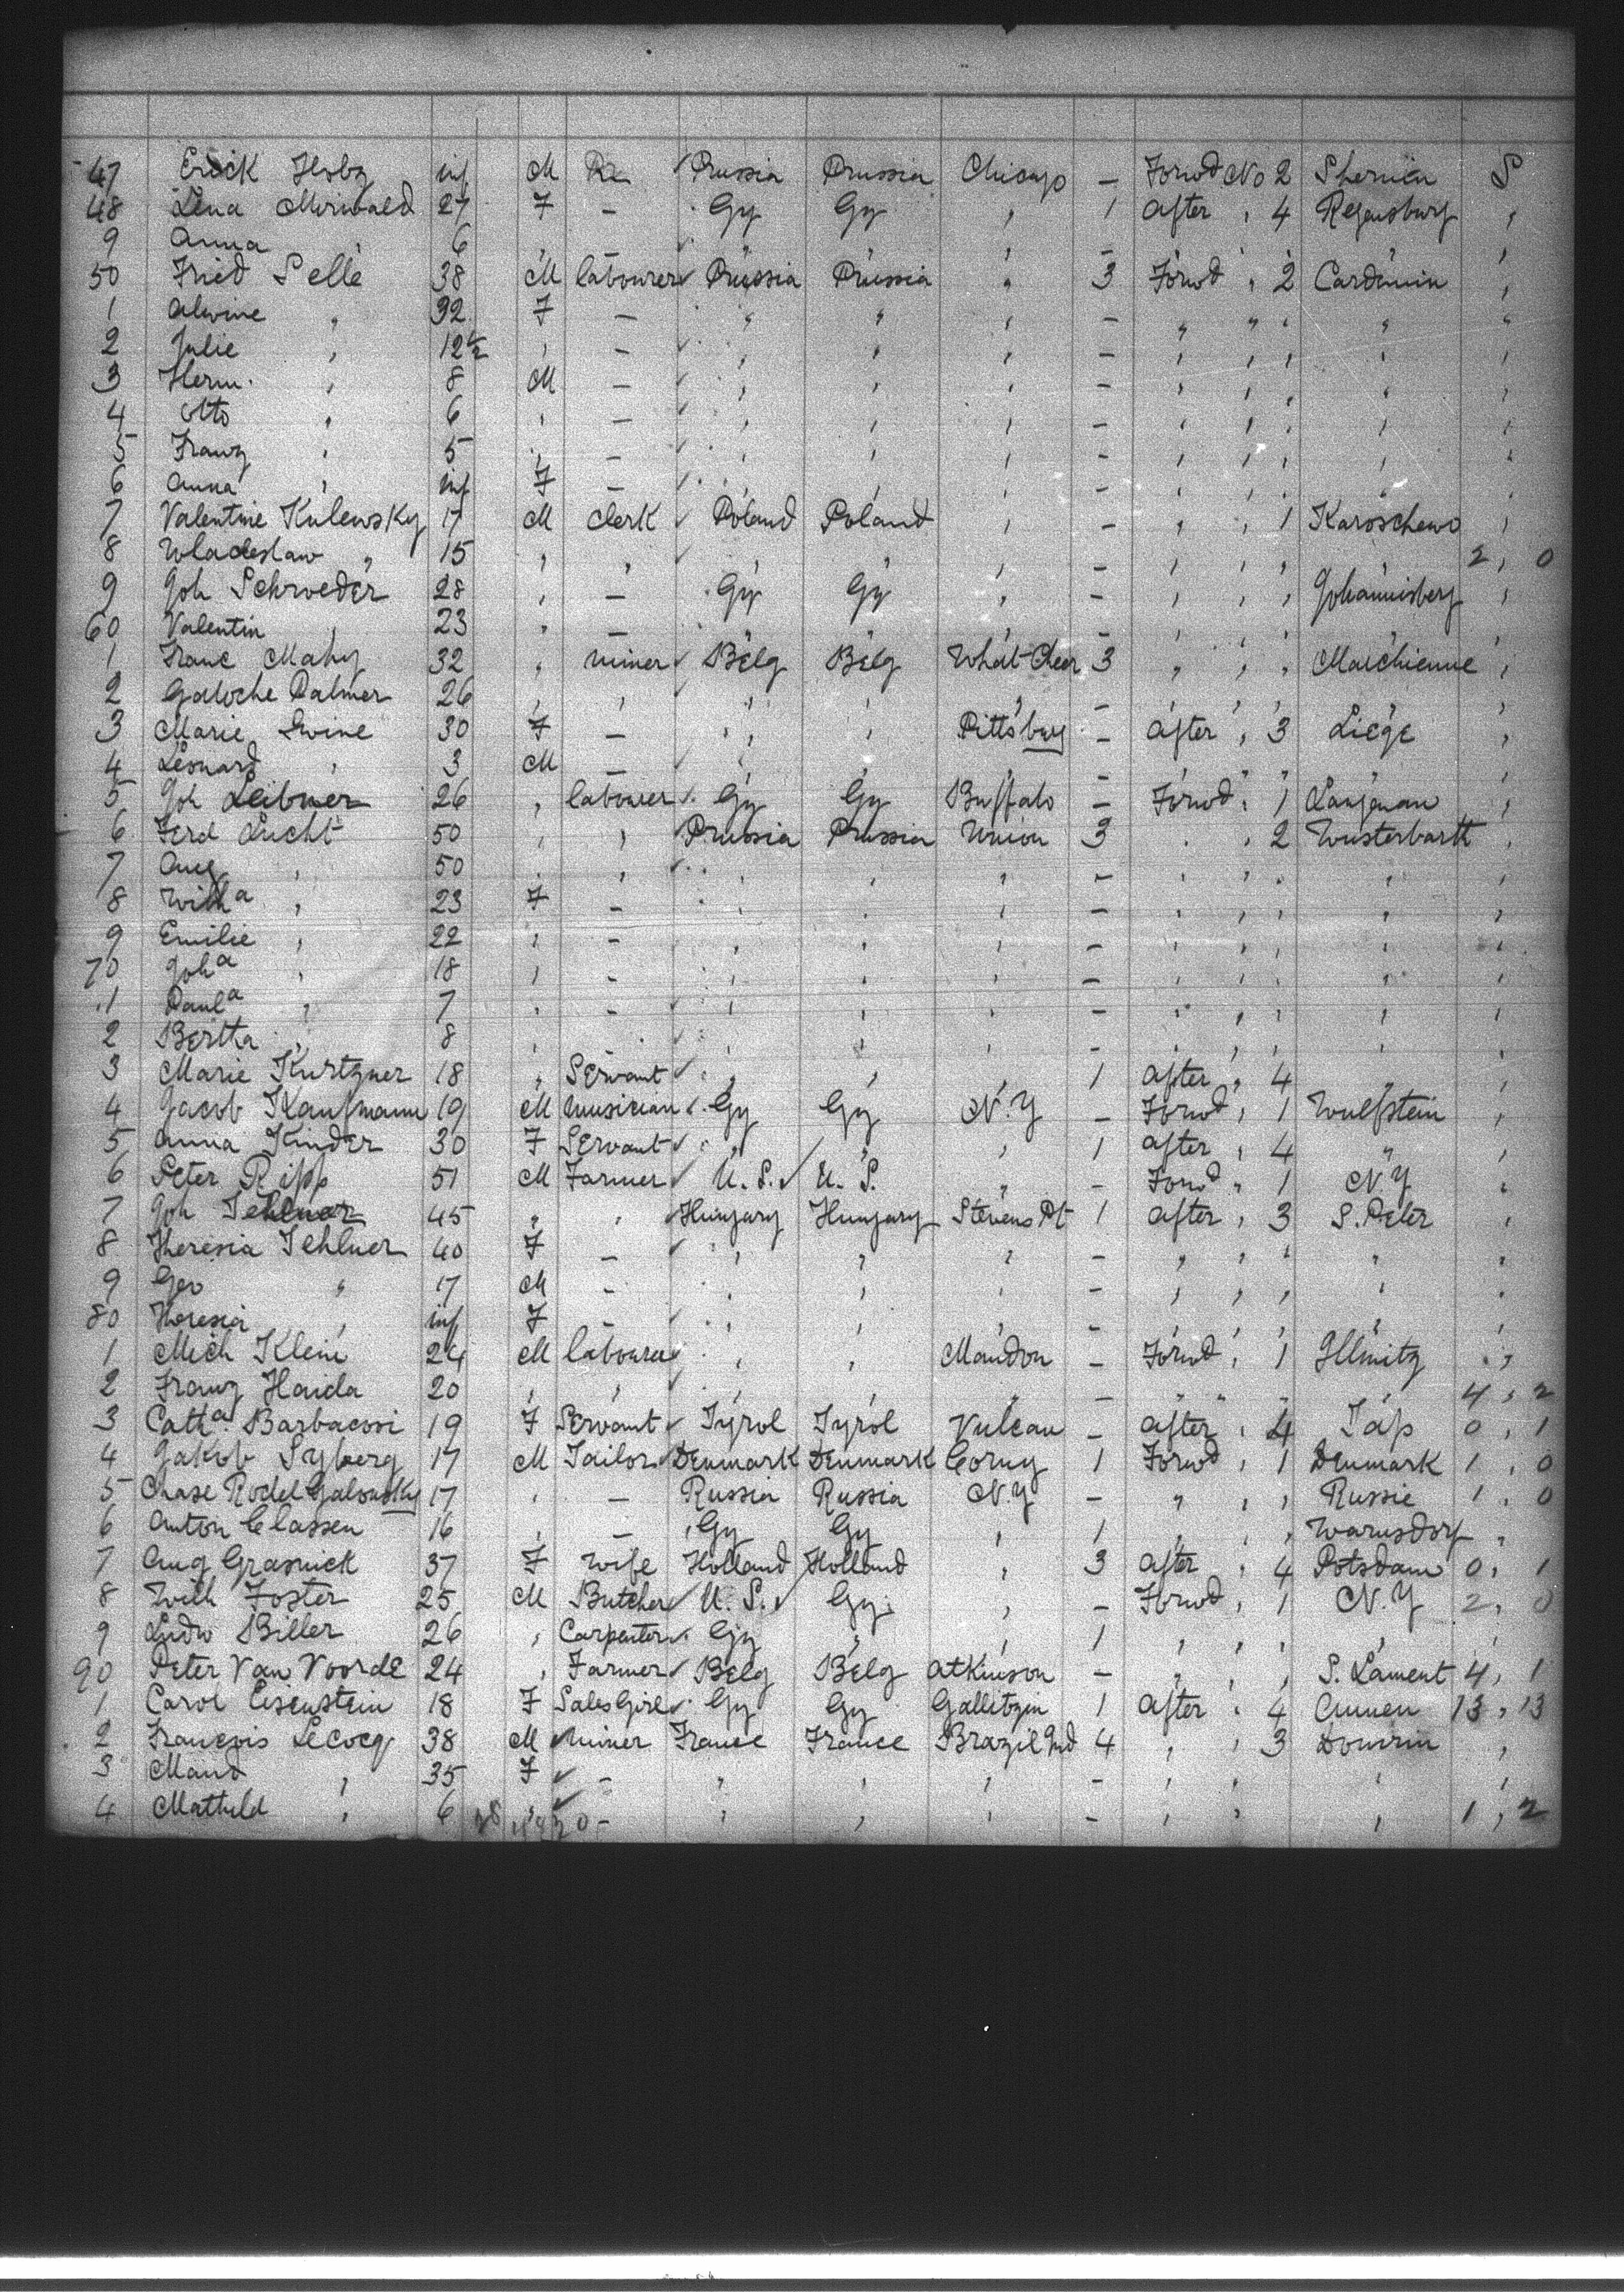 47 Erick Holtz inf M Prussia Prussia Chicago - Forwd No 2 S
48 Lena 27 F - Gy Gy " 1 After " 4 Regensburg "
9 Anna " 6 " - " " " - " " " " "
50 Fried Selle 38 M labourer Prussia Prussia " 3 Forwd " 2 Cardemin "
1 Alwine " 32 F - " " " - " " " " "
2 Julie " 12½ " - " " " - " " " " "
3 Herm. " 8 M - " " " - " " " " "
4 Otto " 6 " - " " " - " " " " "
5 Franz " 5 " - " " " - " " " " "
6 Anna " inf F - " " " - " " " " "
7 Valentine Kulewsky 17 M Clerk Poland Poland " - " " 1 Karoschewo "
8 Wladeslaw " 15 " " " " " - " " " " 2, 0
9 Joh Schroeder 28 " - Gy Gy " - " " " Johannisberg "
60 Valentin " 23 " - " " " - " " " " "
1 Franc Mahy 32 " miner Belg Belg What Cheer 3 " " " Marchienne "
2 Galoche Palmer 26 " " " " " - " " " " "
3 Marie 30 F - " " Pittsburg - After " 3 Liége "
4 Leonard " 3 M - " " " - " " " " "
5 Joh Leibner 26 " labourer Gy Gy Buffalo - Forwd " 1 "
6 Ferd Lucht 50 " " Prussia Prussia Union 3 " " 2 Wusterbarth "
7 Aug " 50 " " " " " - " " " " "
8 Wilhª " 23 F - " " " - " " " " "
9 Emilie " 22 " - " " " - " " " " "
70 Johª " 18 " - " " " - " " " " "
1 Paulª " 7 " - " " " - " " " " "
2 Bertha " 8 " - " " " - " " " " "
3 Marie Kurtzner 18 " Servant " " " 1 After " 4 " "
4 Jacob Kaufmann 19 M musician Gy Gy N.Y - Forwd " 1 Wulfstein "
5 Anna Kinder 30 F Servant " " " 1 After " 4 " "
6 Peter Ripp 51 M Farmer U.S. U.S. " - Forwd " 1 N.Y "
7 Joh Tehlner 45 " " Hungary Hungary Stevens Pt 1 After " 3 S. Peter "
8 Theresia Tehlner 40 F - " " " - " " " " "
9 Geo " 17 M - " " " - " " " " "
80 Theresia " inf F - " " " - " " " " "
1 Mich Klein 24 M labourer " " Mandon - Forwd " 1 Illmitz "
2 Franz Haida 20 " " " " " - " " " " 4, 2
3 Cathª Barbacovi 19 F Servant Tyrol Tyrol Vulcan - After " 4 Tap 0, 1
4 Jakob Syberg 17 M Tailor Denmark Denmark Corny 1 Forwd " 1 Denmark 1, 0
5 Chase Rodel Galowsky 17 " - Russia Russia N.Y - " " " Russie 1, 0
6 Anton Classen 16 " - Gy Gy " 1 " " " Warnsdorf "
7 Aug Grasnick 37 F Wife Holland Holland " 3 After " 4 Potsdam 0, 1
8 Wilh Foster 25 M Butcher U.S. Gy " - Forwd " 1 N.Y 2, 0
9 Ludw Biller 26 " Carpenter Gy " " 1 " " " " "
90 Peter Van Voorde 24 " Farmer Belg Belg Atkinson - " " " S. Lament 4, 1
1 Carol Eisenstein 18 F Sales Girl Gy Gy Gallitzin 1 After " 4 13, 13
2 Francois Lecocq 38 M Miner France France Brazil Ind 4 " " 3 Douvrin "
3 Maud " 35 F - " " " - " " " "
4 Mathild " 6 " - " " " - " " " 1, 2